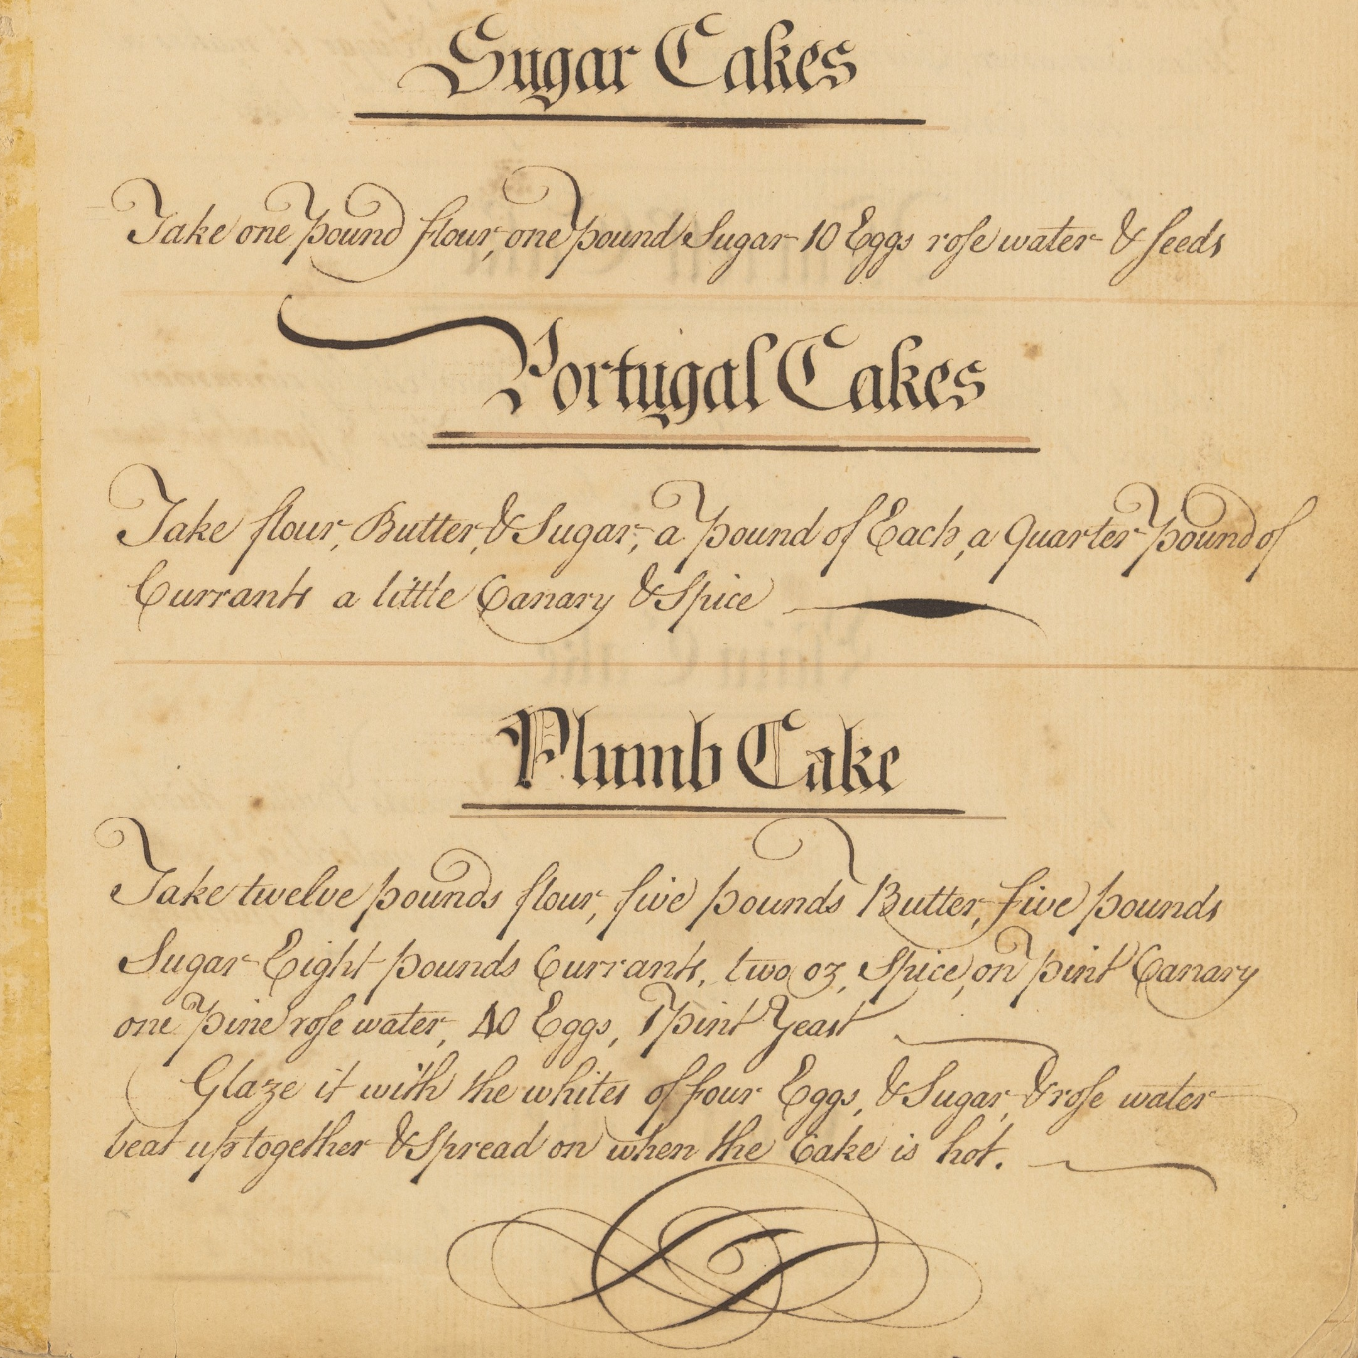 Sugar Cakes
Take one pound flour, one pound Sugar 10 Eggs rose water & seeds
Portugal Cakes
Take flour, Butter, & Sugar, a pound of Each, a Quarter pound of
Currants a little Canary & Spice
Plumb Cake
Take twelve pounds flour, five pounds Butter, five pounds
Sugar Eight pounds Currants, two oz, Spice, on pint Canary
one pine rose water, 40 Eggs, 1 pint Yeast
Glaze it with the whites of four Eggs, & Sugar, & rose water
beat up together & Spread on when the Cake is hot.